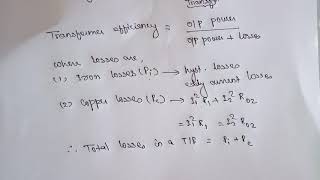 Transf
Transformer efficiency = o/p power
o/p power + losses
where losses are,
(1) Iron losses (Pi) → hyst. losses
eddy current losses
(2) Copper losses (Pc) → I₁² R₁ + I₂² R02
= I₁² R₁ = I₂² R02
∴ Total losses in a T/F = Pi + Pc